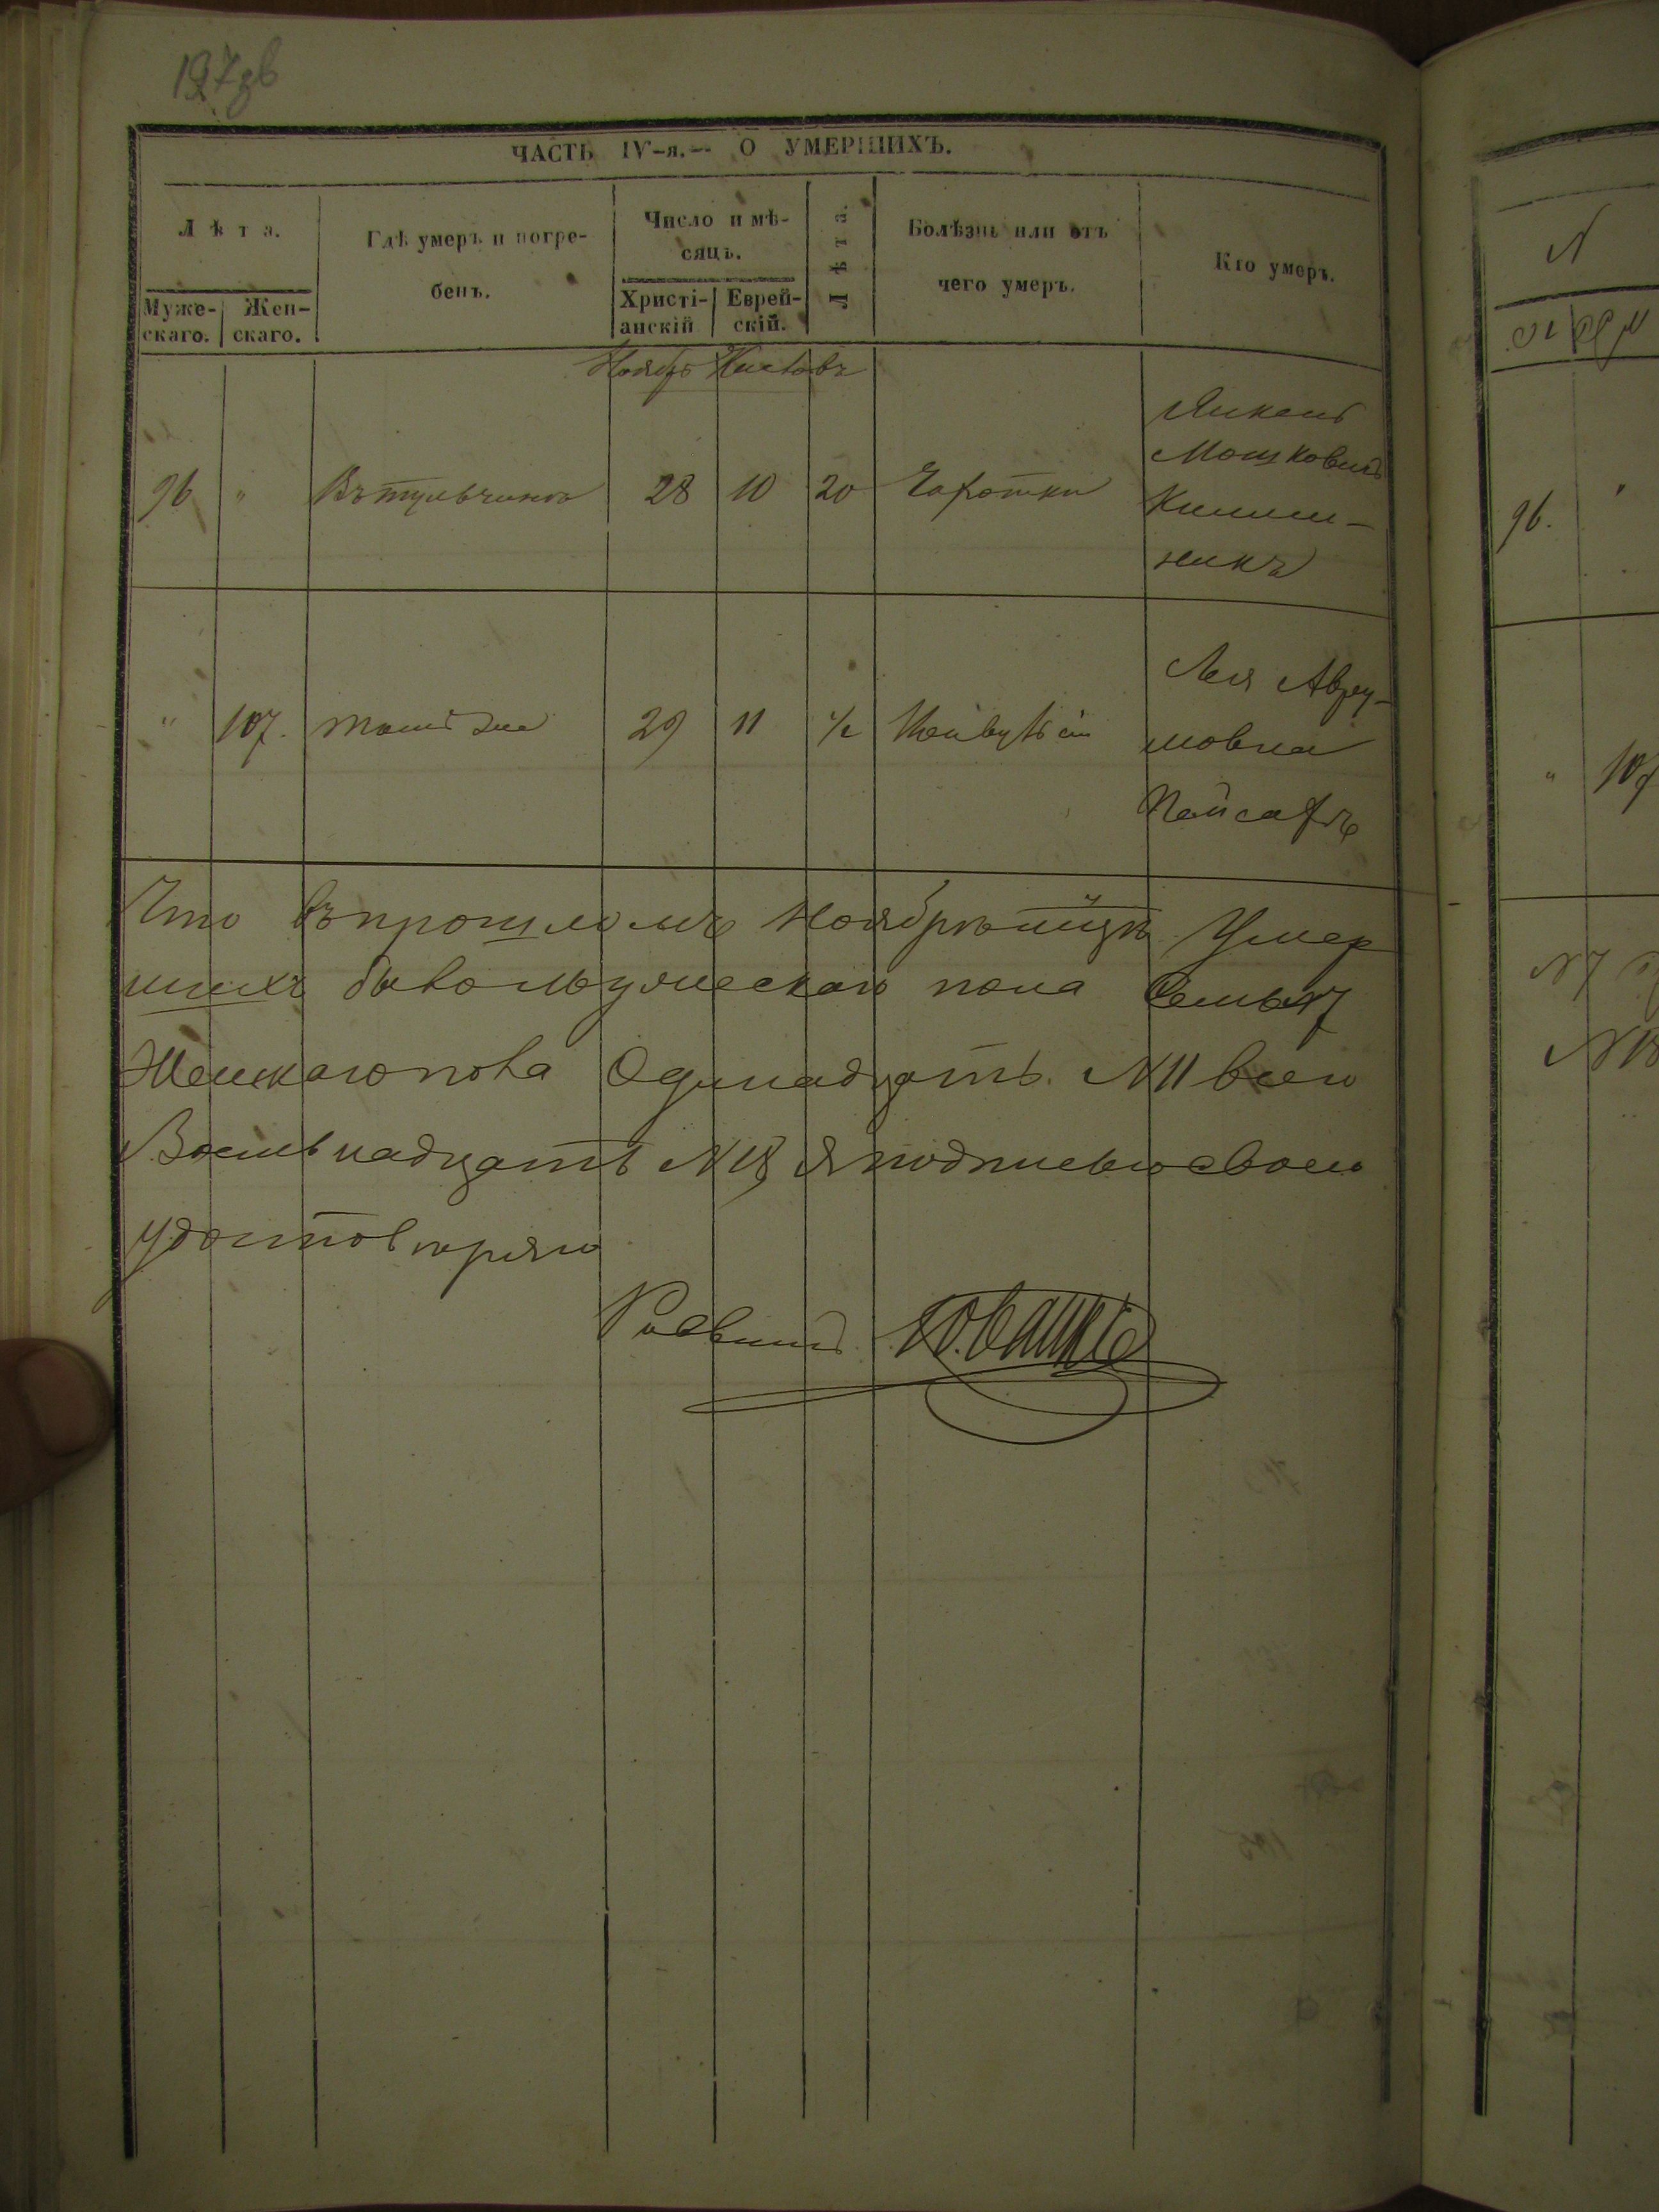 197зв
ЧАСТЬ IV-я.— О УМЕРШИХЪ.
Лѣта.
Муже-
скаго.
Жен-
скаго.
Гдѣ умеръ и погре-
бенъ.
Число и мѣ-
сяцъ.
Христі-
анскій
Еврей-
скій.
Лѣта.
Болѣзнь или отъ
чего умеръ.
Кто умеръ.
Ноябрь
96 " Въ тульчинѣ 28 10 20 Чахотки
Янкель
Мошковичъ
" 107. тамъ же 29 11 ½
Лея Авру-
мовна
Пейсахъ
Что въ прошломъ Ноябрѣ мцѣ Умер
шихъ было мужескаго пола Семь №7
Женскаго пола Одинадцать №11 всего
Восьмнадцать №18 я подписью своею
удостовѣряю
Раввинъ
N
96.
" 107
№7
№18